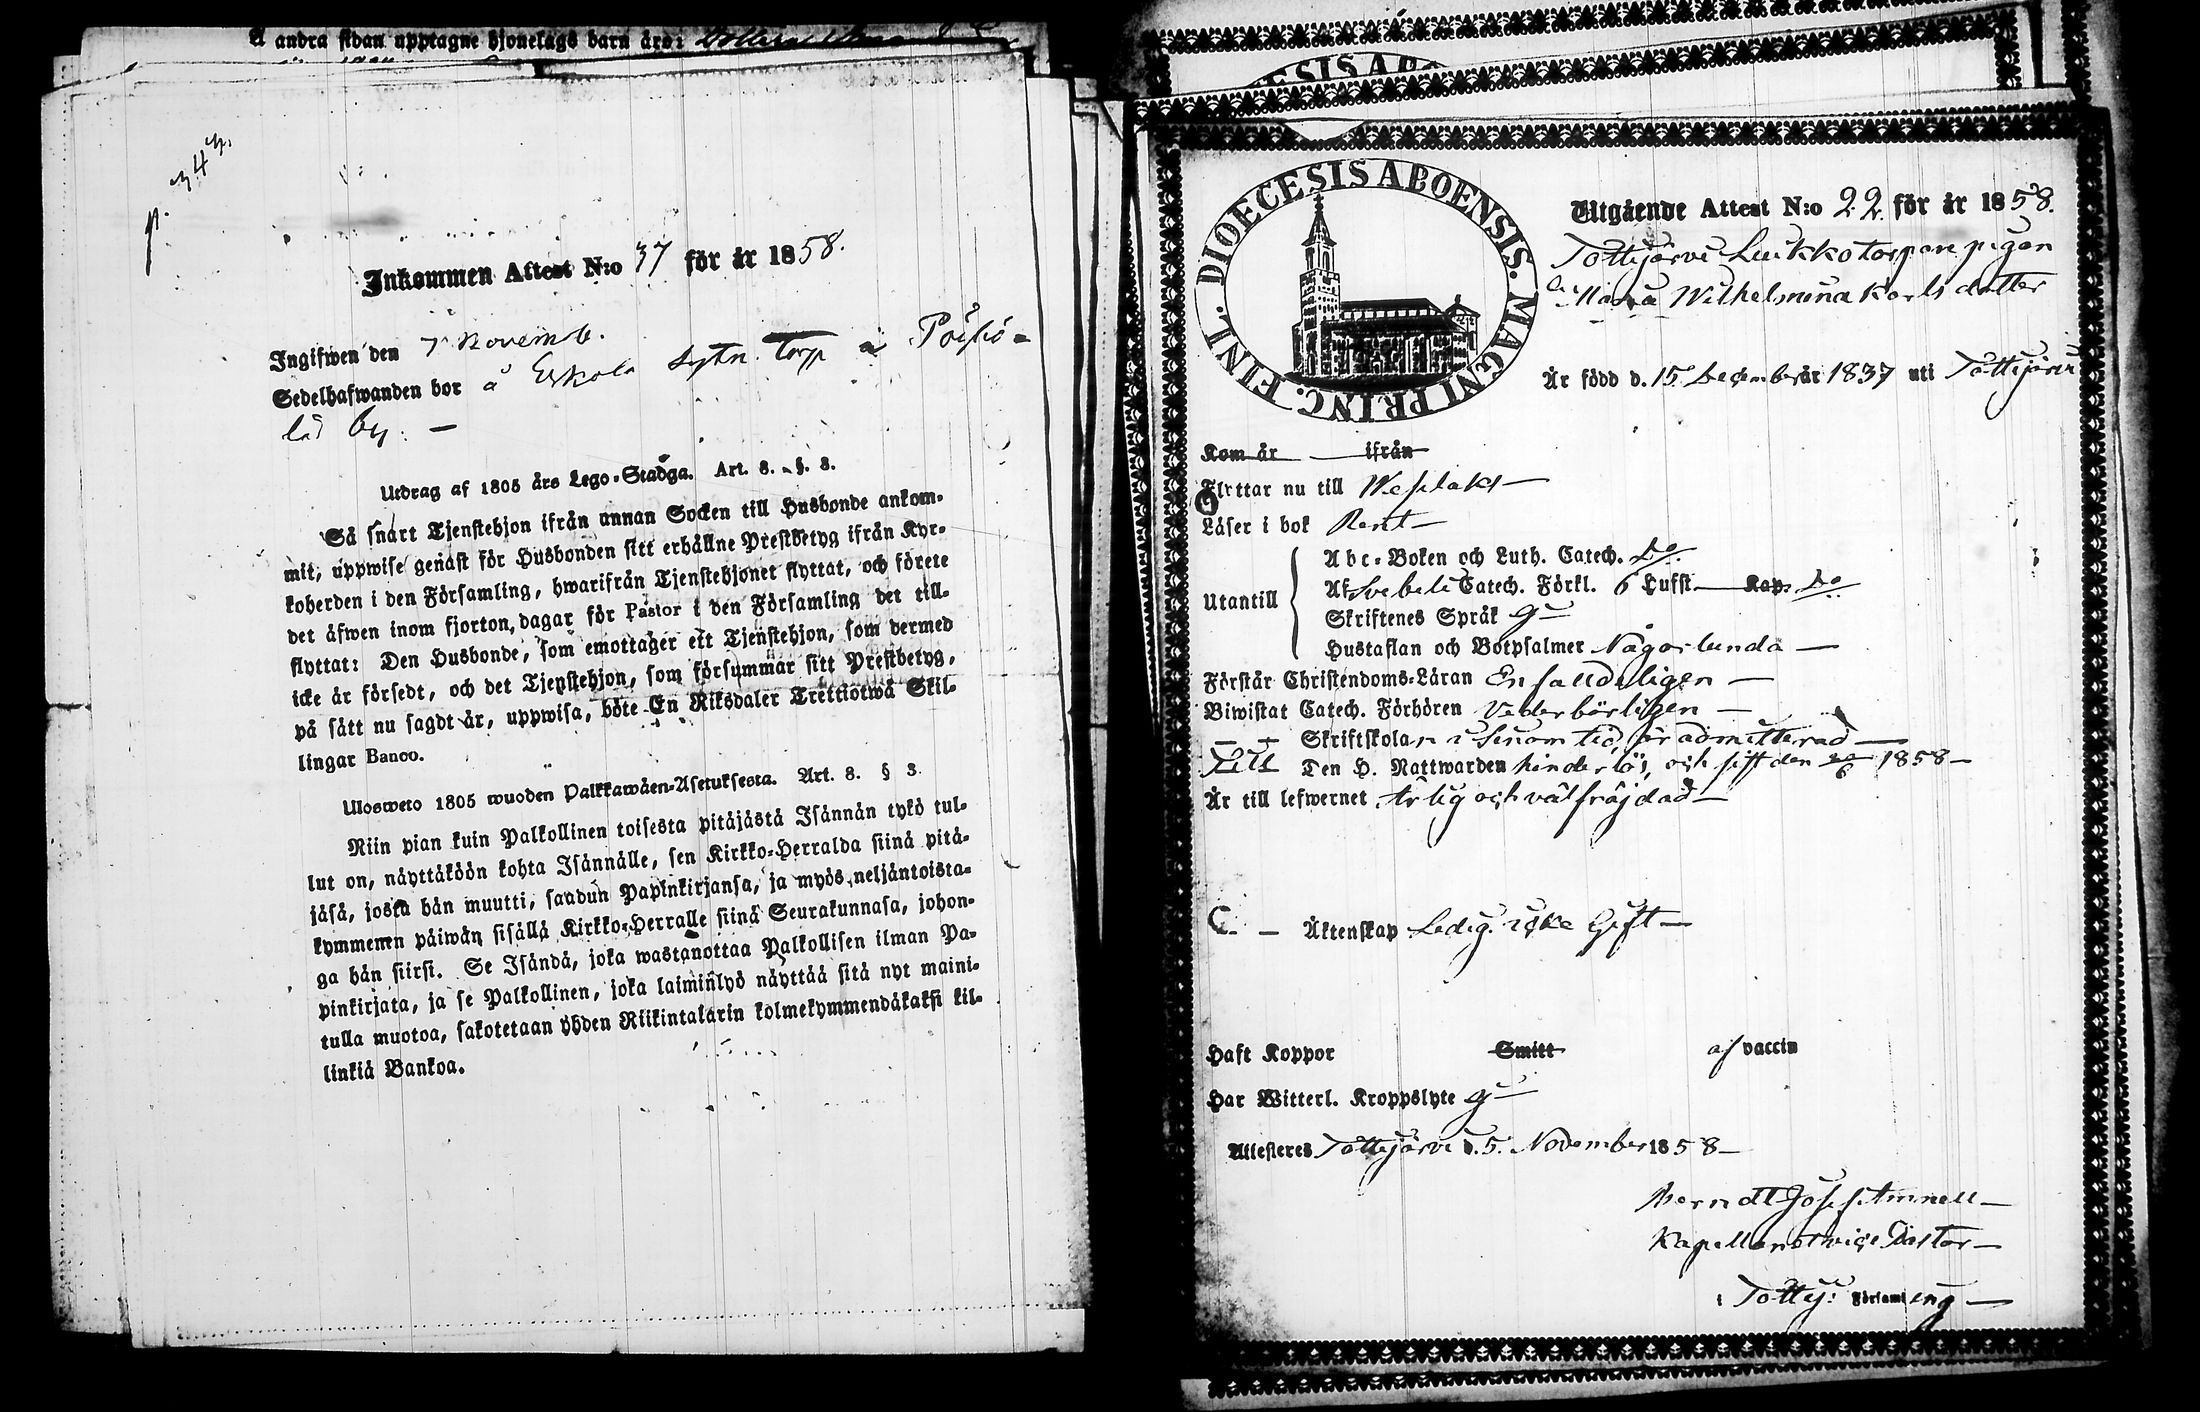 Å andra sidan upptagne hjonelags barn äro:
p. 343.
Inkommen Attest N:o 37 för år 1858.
Ingifwen den 7 Novemb.
Sedelhafwanden bor å Eskola torp i Poisio=
la by. —
Utdrag af 1805 års Lego-Stadga. Art. 8. §. 3.
Så snart Tjenstehjon ifrån annan Socken till Husbonde ankom-
mit, uppwise genast för Husbonden sitt erhållne Prestbetyg ifrån Kyr-
koherden i den Församling, hwarifrån Tjenstehjonet flyttat, och förete
det äfwen inom fjorton dagar för Pastor i den Församling det till-
flyttat: Den Husbonde, som emottager ett Tjenstehjon, som dermed
icke är försedt, och det Tjenstehjon, som försummar sitt Prestbetyg,
på sätt nu sagdt är, uppwisa, böte En Riksdaler Trettiotwå Skil-
lingar Banco.
Ulosweto 1805 wuoden Palkkawäen-Asetuksesta. Art. 8. § 3.
Niin pian kuin Palkollinen toisesta pitäjästä Isännän tykö tul-
lut on, näyttäköön kohta Isännälle, sen Kirkko-Herralda siinä pitä-
jäsä, josta hän muutti, saadun Papinkirjansa, ja myös neljäntoista-
kymmenen päiwän sisällä Kirkko-Herralle siinä Seurakunnasa, johon-
ga hän siirsi. Se Isändä, joka wastanottaa Palkollisen ilman Pa-
pinkirjata, ja se Palkollinen, joka laiminlyö näyttää sitä nyt maini-
tulla muotoa, sakotetaan yhden Riikintalarin kolmekymmendäkaksi kil-
linkiä Bankoa.
DIOECESIS ABOENSIS. MAGNI PRINC. FINL.
Utgående Attest N:o 22. för år 1858.
Tottijärvi Luikko torpare pigan
Maria Wilhelmina Karls dotter
Är född d. 15 December år 1837 uti Tottijärvi
Kom år ifrån
Flyttar nu till Wesilaks —
Läser i bok Rent —
Utantill
Abc-Boken och Luth. Catech. Do
Af Svebeli Catech. Förkl. 6 Lufst — Kap. Do
Skriftenes Språk
Hustaflan och Botpsalmer Någorlunda —
Förstår Christendoms-Läran Enfaldeligen —
Biwistat Catech. Förhören Vederbörligen —
— — Skriftskolan i sinom tid, är admitterad —
Den H. Nattwarden hinderlös, och sist den 1858 —
Är till lefwernet Ärlig och välfräjdad —
— Äktenskap Ledig. icke Gift —
Haft Koppor Smitt af vaccin
Har Witterl. Kroppslyte
Attesteras Tottijärvi d. 5. November 1858 —
Berndt Josef Amnell —
Kapellans Pastor —
i Tottij: Församling —